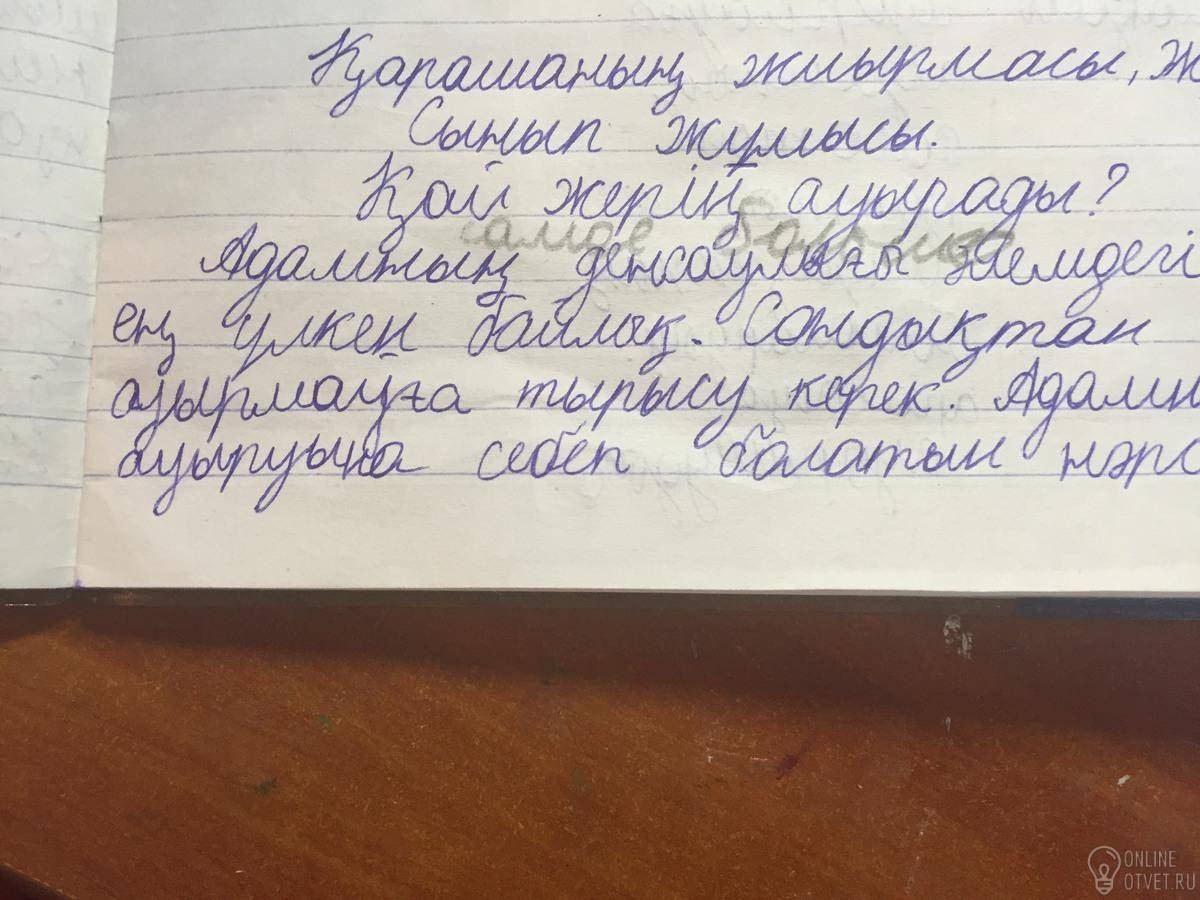 Қарашаның жиырмасы, ж
Сынып жұмысы.
Қай жерің ауырады?
Адамның денсаулығы әлемдегі
ең үлкен байлық. Сондықтан
ауырмауға тырысу керек. Адамн
ауыруына себеп болатын нәрс
ONLINE
OTVET.RU